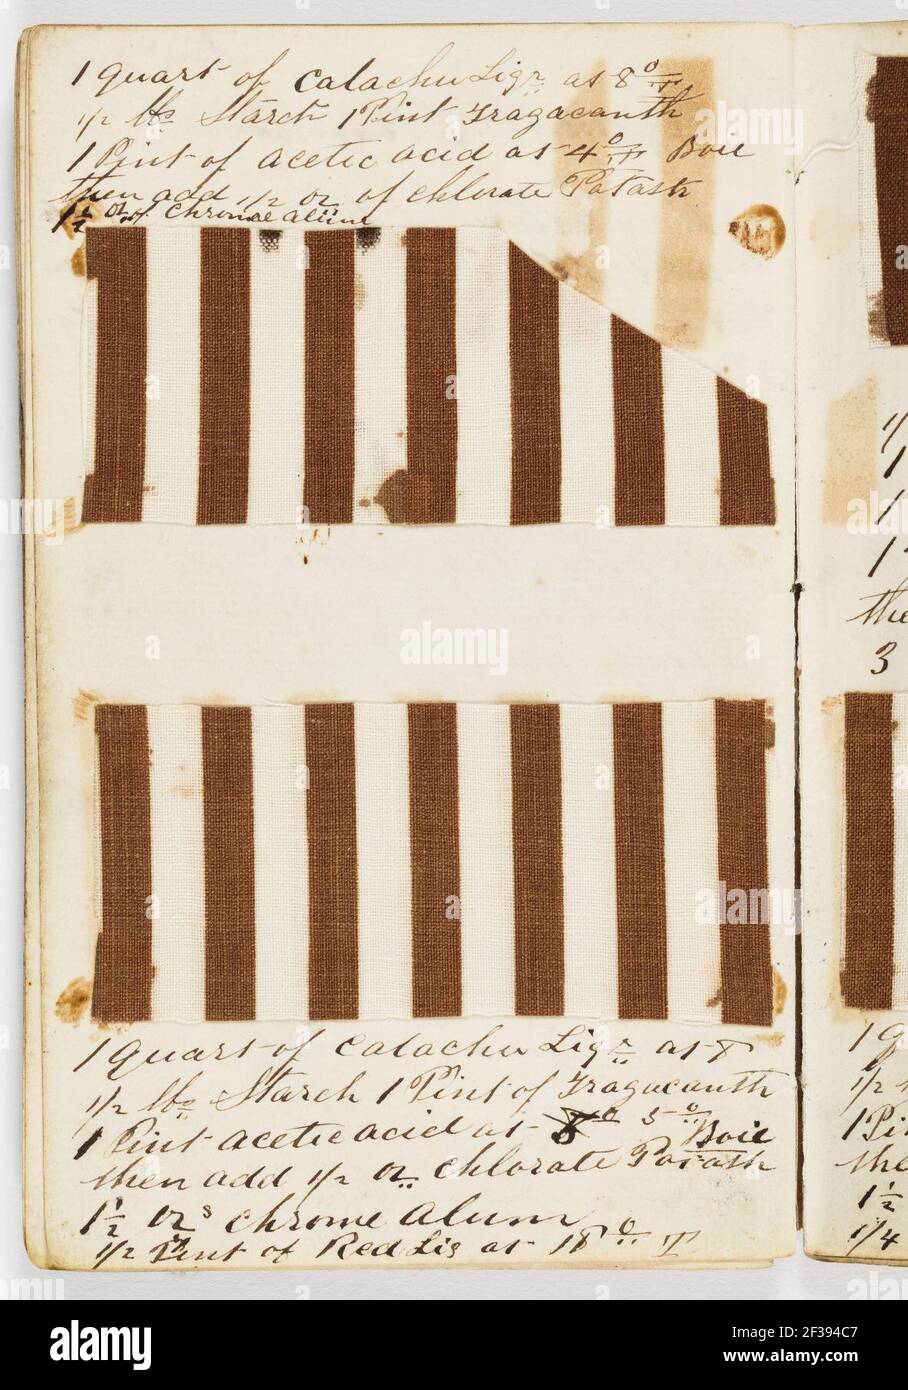 1 quart of Catachu Liqr as 8° T
1/2 lbs Starch 1 Pint Tragacanth
1 Pint of acetic acid as 4° T Boil
then add 1/2 oz of chlorate Potash
1 1/2 oz of chrome alum
1/
1
1
1
the
3
1 quart of Catachu Liqr as 8
1/2 lbs Starch 1 Pint of Tragacanth
1 Pint acetic acid at 5° Boil
then add 1/2 oz chlorate Potash
1 1/2 ozs chrome alum
1/2 Pint of Red Liq at 18° T
1 q
1/2
1 Pi
the
1 1/2
1/4
alamy
a
alamy
Image ID: 2F394C7
www.alamy.com